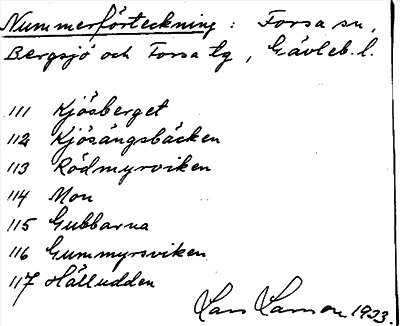 Nummerförteckning: Forsa sn,
Bergsjö och Forsa tg, Gävleb. l.
111 Kjösberget
112 Kjösängsbäcken
113 Rödmyrviken
114 Mon
115 Gubbarna
116 Gummyrsviken
117 Hälludden
Lars 1933.